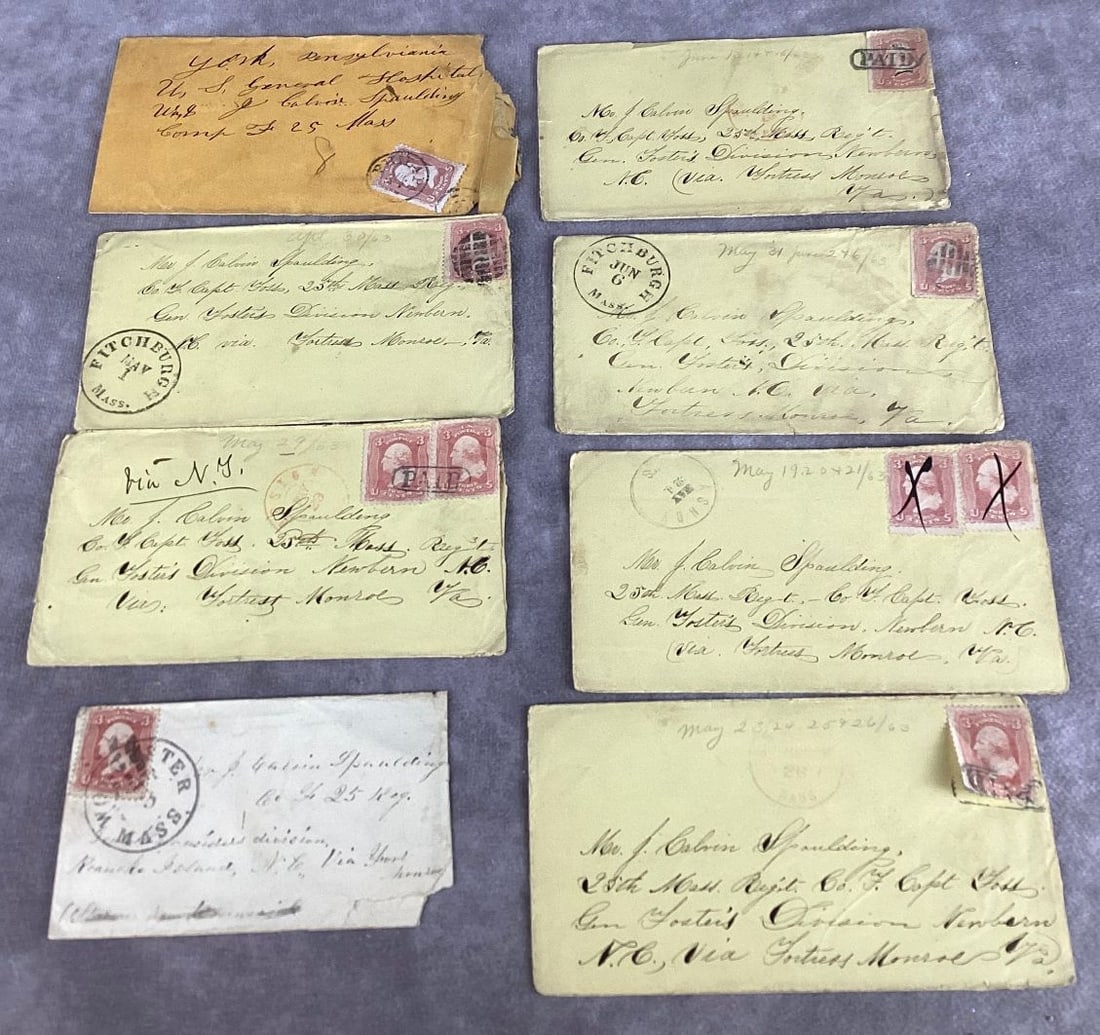 York, Pensylvania
U, S, General Hospital
J Calvin Spaulding
Comp F 25 Mass
8
June
PAID
Mr. J. Calvin Spaulding,
Co. F, Capt Foss, 25th Mass, Reg't.
Gen. Foster's Division, Newbern,
N.C. (Via. Fortress Monroe
Va.)
Apl 30/63
Mr J. Calvin Spaulding.
Co F. Capt Foss, 25th Mass Reg.
Gen Foster's Division Newbern.
N.C. via. Fortress Monroe, Va.
FITCHBURGH
MAY
1
MASS.
May 31 June 2 + 6/63
FITCHBURGH
JUN
6
MASS.
J. Calvin Spaulding,
Co, F, Capt, Foss, 25th, Mass. Reg't.
Gen. Foster's, Division,
Newbern N.C. Via,
Fortress Monroe, Va.
May 29/63
via N.Y.
PAID
Mr J. Calvin Spaulding
Co. F. Capt Foss. 25th Mass. Reg't.
Gen Foster's Division Newbern N.C.
Via; Fortress Monroe Va
May 19. 20 & 21/63
X X
Mr. J. Calvin Spaulding.
25th Mass Reg't. - Co F. Capt. Foss.
Gen. Foster's Division, Newbern N.C.
(Via. Fortress Monroe, Va.)
WORCESTER
MASS
J Calvin Spaulding
Co F 25 Reg.
division,
Roanoke Island, N.C, Via
Monroe
May 23, 24 25 & 26/63
MASS
Mr. J. Calvin Spaulding,
25th Mass. Reg't. Co. F. Capt Foss.
Gen Foster's Division Newbern
N.C., Via Fortress Monroe Va.